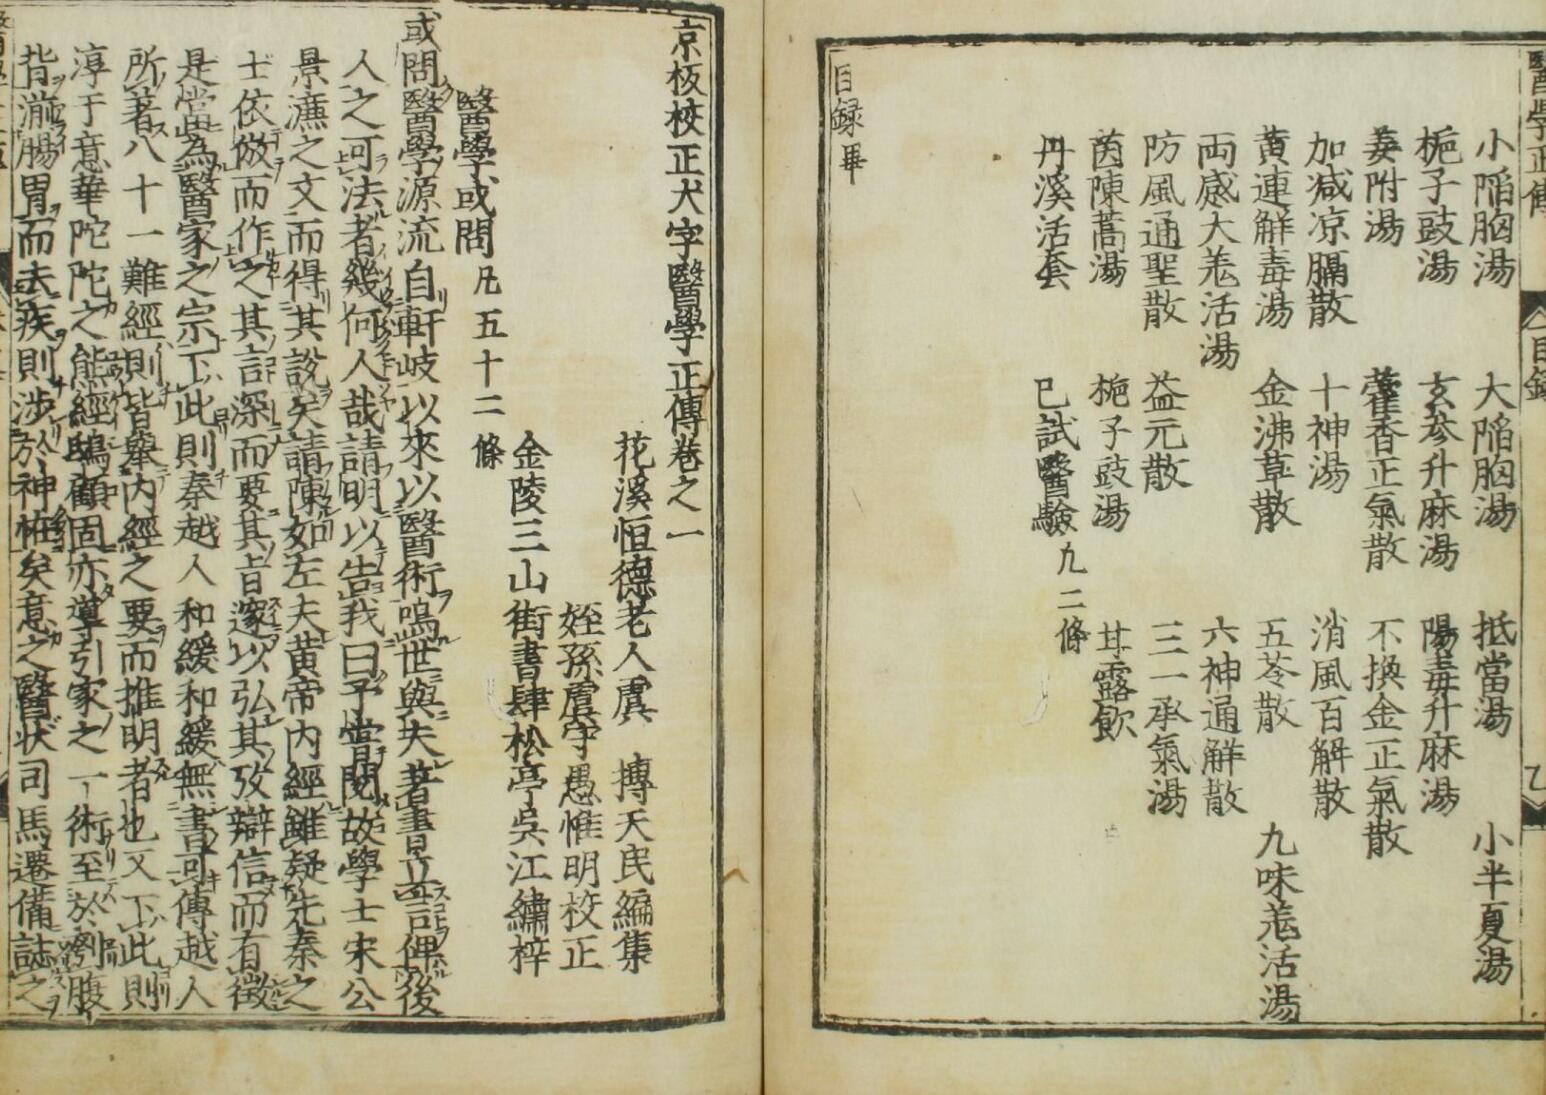 醫學正傳 目錄 乙
小陷胸湯 大陷胸湯 抵當湯 小半夏湯
梔子豉湯 玄參升麻湯 陽毒升麻湯
姜附湯 藿香正氣散 不換金正氣散
加减凉膈散 十神湯 消風百解散
黄連解毒湯 金沸草散 五苓散 九味羗活湯
両感大羗活湯 六神通解散
防風通聖散 益元散 三一承氣湯
茵陳蒿湯 梔子豉湯 甘露飲
丹溪活套 已試醫驗 九二條
目録畢
京板校正大字醫學正傳卷之一
花溪恒德老人虞 摶天民編集
姪孫虞守愚惟明校正
金陵三山街書肆松亭吳江繡梓
醫學或問 凡五十二條
或問醫學源流自軒岐以來以醫術鳴世與夫著書立言俾後
人之可法者幾何人哉請明以告我曰予嘗閱故學士宋公
景濂之文而得其說矣請陳如左夫黄帝内經雖疑先秦之
士依倣而作之其言深而要其旨邃以弘其攷辯信而有徵
是當爲醫家之宗下此則秦越人和緩和緩無書可傳越人
所著八十一難經則皆舉内經之要而推明者也又下此則
淳于意華陀陀之熊經鴟顧固亦導引家之一術至於刳腹
背湔腸胃而去疾則涉於神怪矣意之醫状司馬遷備誌之